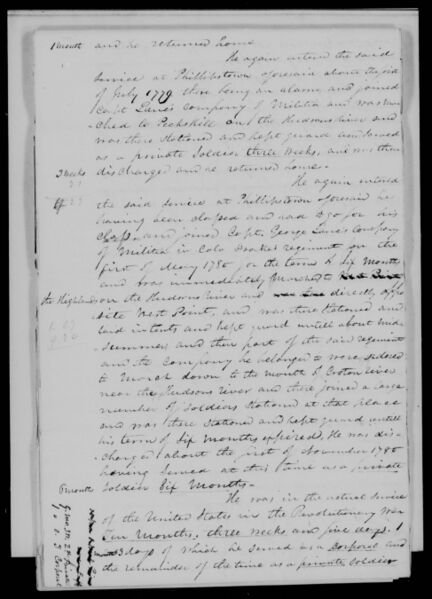 1 month and he returned home.
He again entered the said
service at Phillipstown aforesaid about the 3rd
of July 1779 there being an alarm and joined
Capt Lane's Company of Militia and was mar
-ched to Peekskill on the Hudsons river and
was there stationed and kept guard and served
as a private Soldier three weeks, and was then
3 weeks discharged and he returned home.
He again entered
the said service at Phillipstown aforesaid he
having been classed and
class, and joined Capt. George Lane's Company
of Militia in Colo Drakes regiment on the
first of May 1780 for the term of Six Months
and was immediately marched to
the Highlands on the Hudsons river and directly oppo
-site West Point, and was there stationed and
said in tents and kept guard untill about mid
-summer and then part of the said regiment
and the Company he belonged to were ordered
to March down to the mouth of Croton river
near the Hudsons river and there joined a large
number of Soldiers stationed at that place
and was there stationed and kept guard untill
his term of Six Months expired, He was dis-
-charged about the first of November 1780
having served at this time as a private
6 month Soldier Six Months.
He was in the actual service
of the United States in the Revolutionary War
Ten Months, three weeks and five days.
days of which he served as a Corporal and
the remainder of the time as a private Soldier